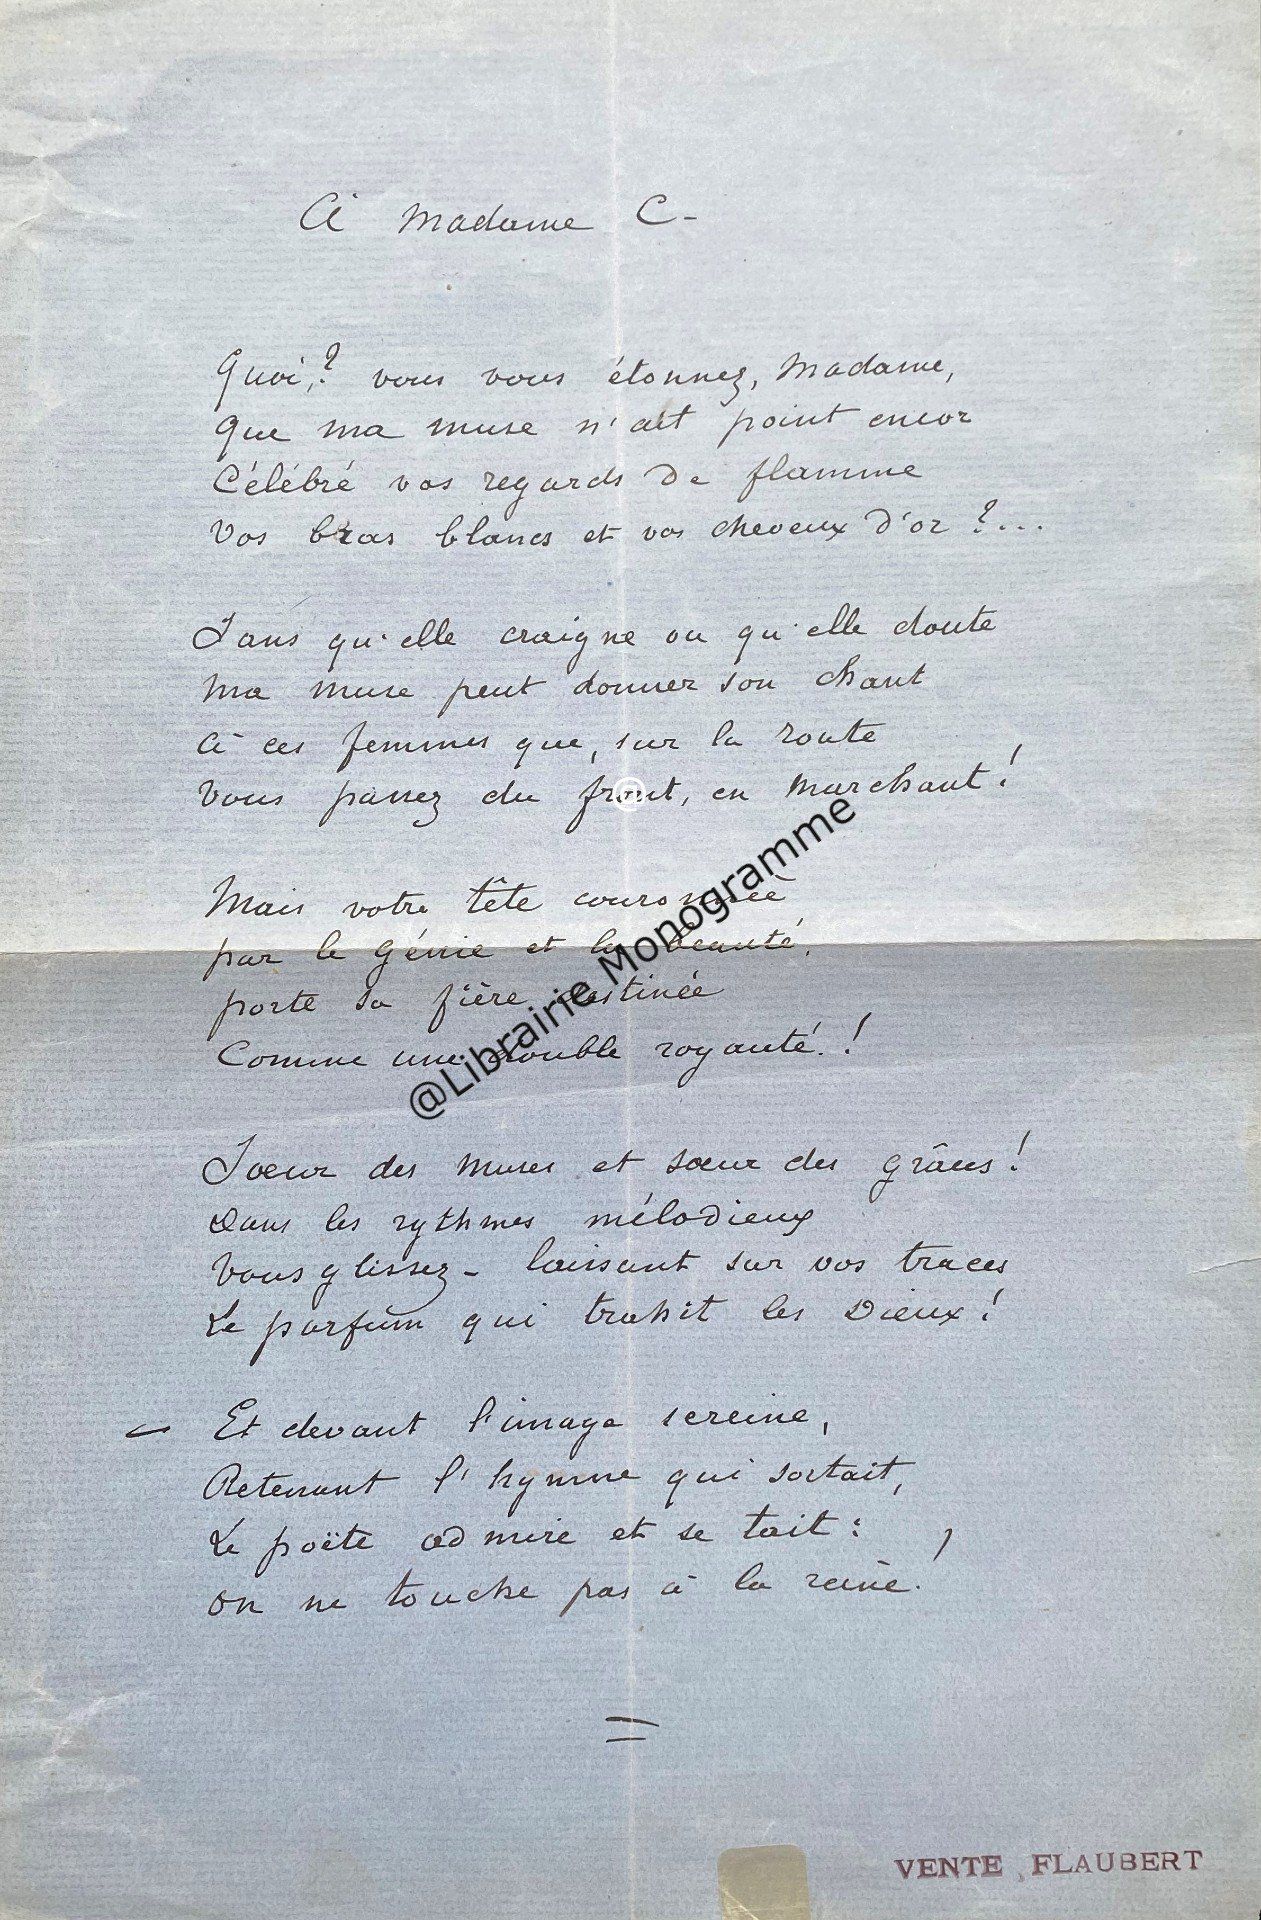 A Madame C-
Quoi,? vous vous étonnez, Madame,
Que ma muse n'ait point encor
Célébré vos regards de flamme
Vos bras blancs et vos cheveux d'or ?...
Sans qu'elle craigne ou qu'elle doute
Ma muse peut donner son chant
A ces femmes que, sur la route
Vous passez du front, en marchant !
Mais votre tête couronnée
par le Génie et la beauté,
porte sa fière destinée
Comme une double royauté !
Sœur des Muses et sœur des grâces !
Dans les rythmes mélodieux
Vous glissez - laissant sur vos traces
Le parfum qui trahit les Dieux !
- Et devant l'image sereine,
Retenant l'hymne qui sortait,
Le poëte admire et se tait :
On ne touche pas à la reine !
@Librairie Monogramme
VENTE FLAUBERT